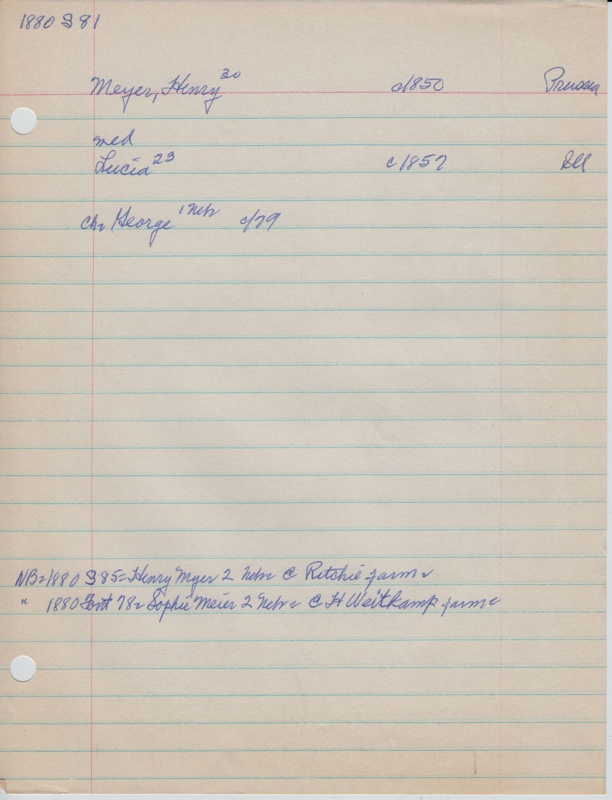 1880 S 81
Meyer, Henry 30 c/1850 Prussia
med
Lucia 23 c/1857 Ill
Ch= George 1 Nebr c/79
NB=1880 S 85= Henry Myer 2 Nebr @ Ritchie farm
" 1880 78= Sophie Meier 2 Nebr= @ H Weitkamp farm